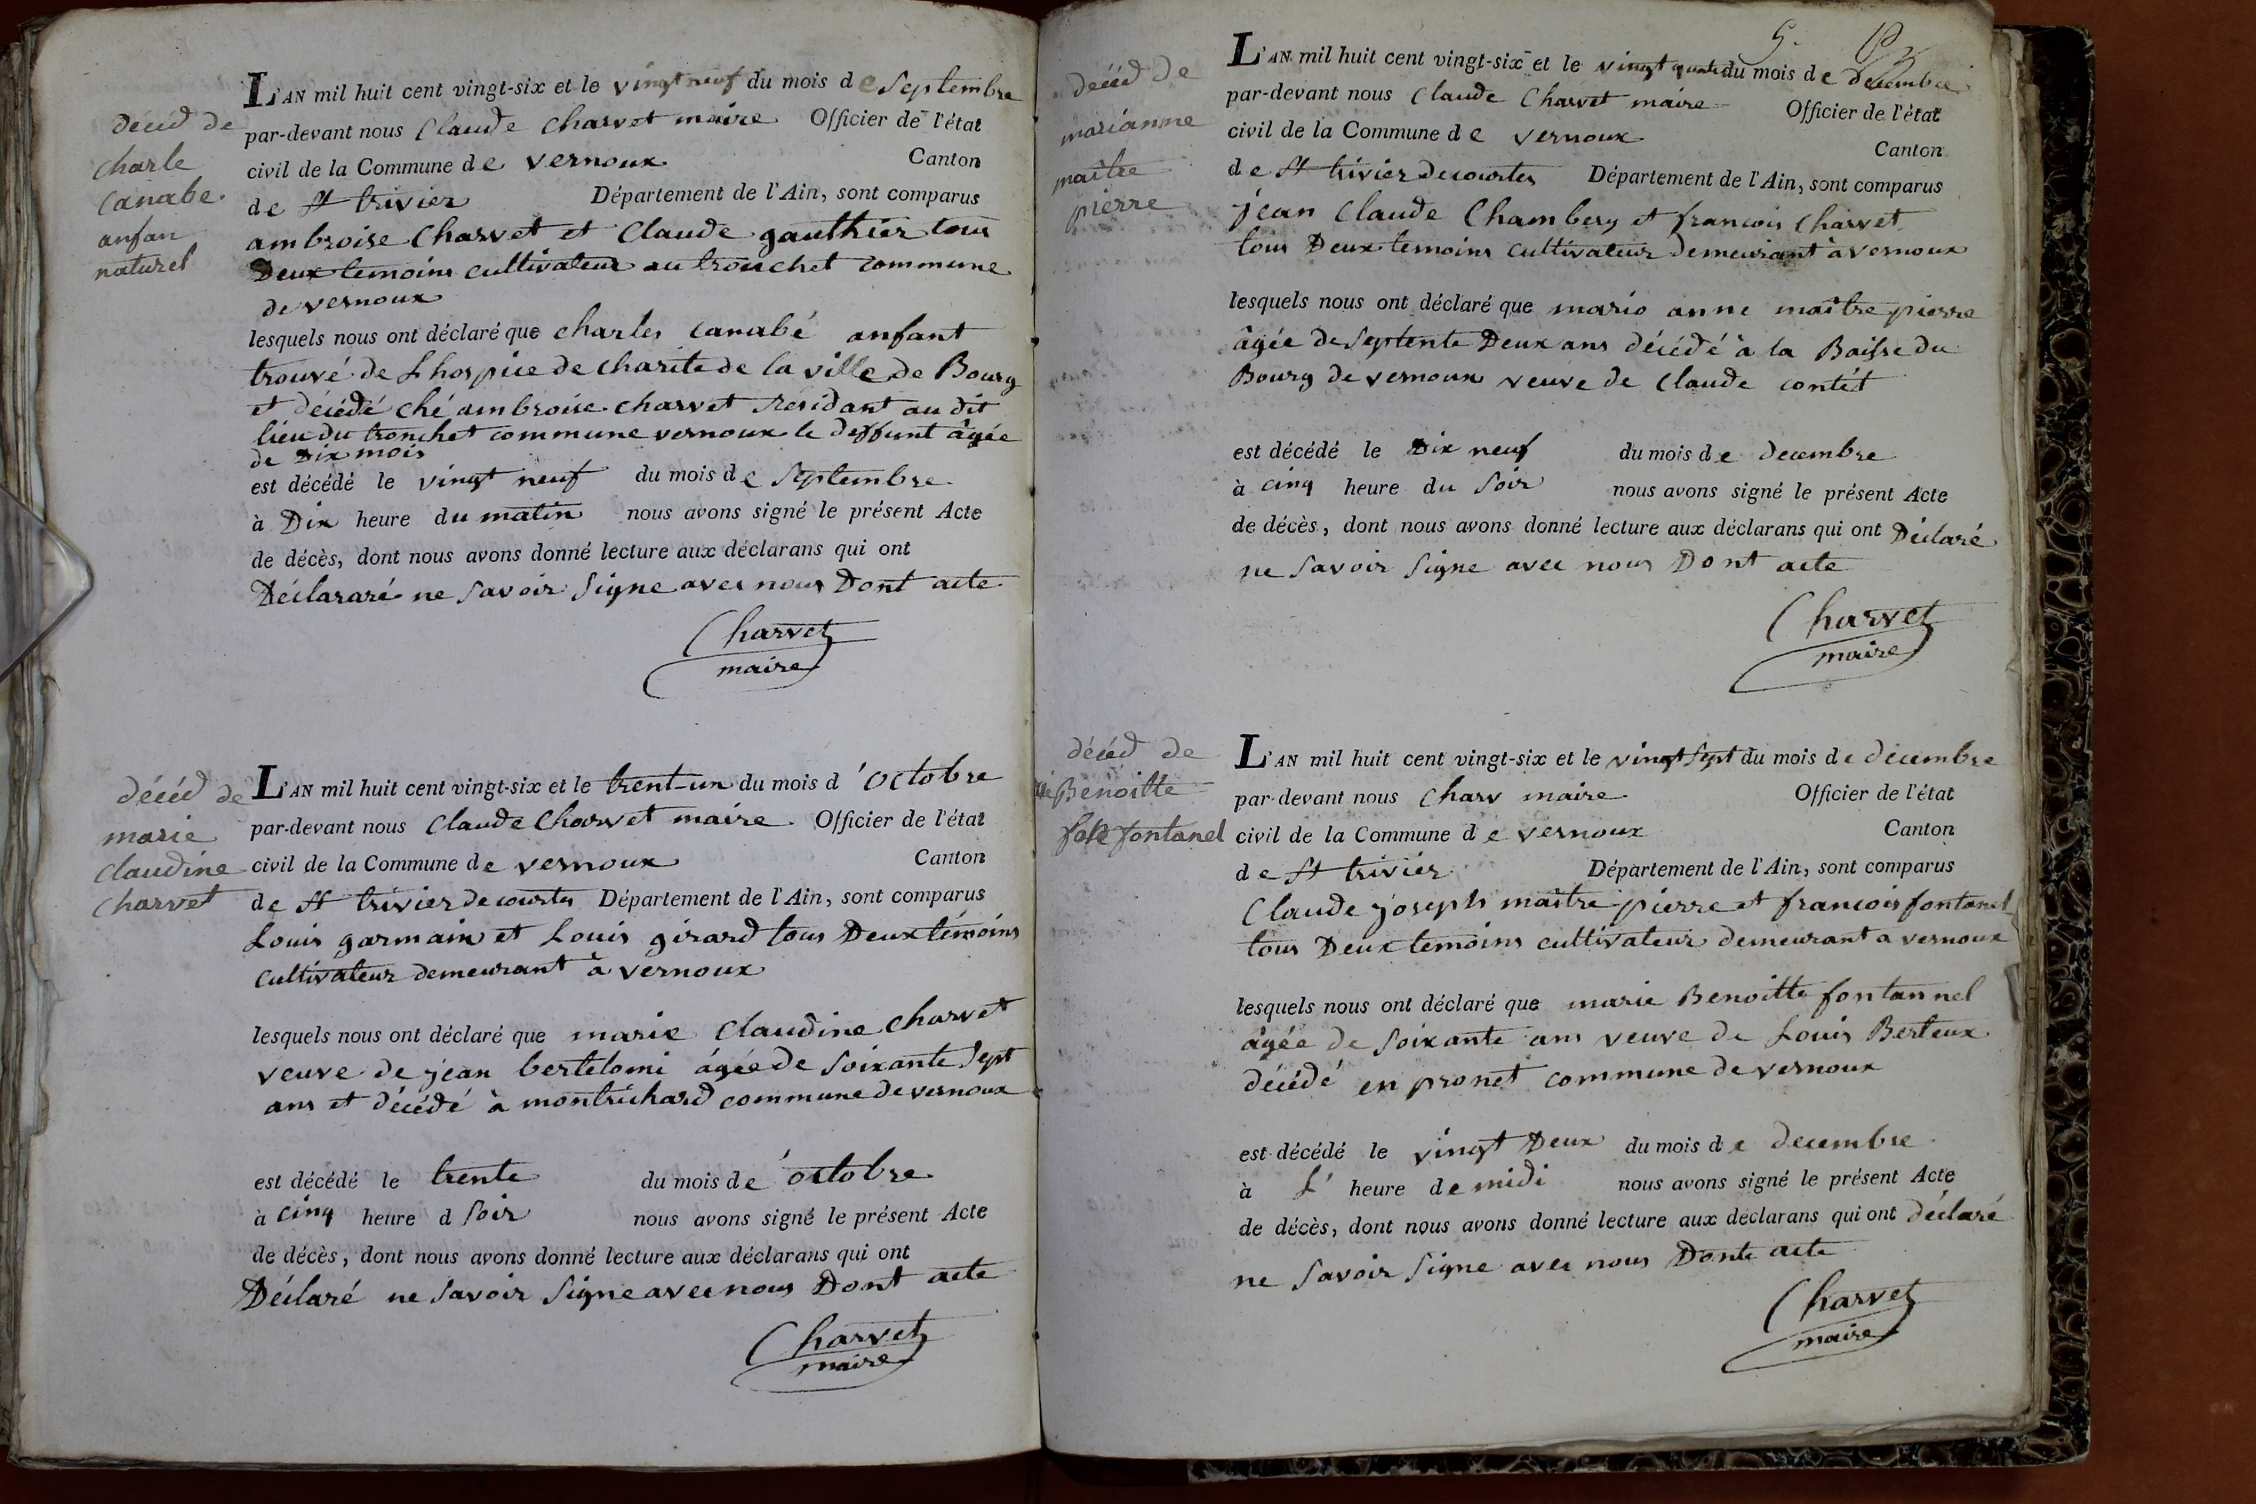 décéd de
charle
Canabe
anfan
naturel
L'AN mil huit cent vingt-six et le vingt neuf du mois de Septembre
par-devant nous Claude Charvet maire Officier de l'état
civil de la Commune de vernoux Canton
de St trivier Département de l'Ain, sont comparus
ambroise Charvet et Claude gauthier tous
Deux temoins cultivateur au tronchet commune
de vernoux
lesquels nous ont déclaré que charles canabé anfant
trouvé de Lhospice de charite de la ville de Bourg
et décédé ché ambroise charvet residant au dit
lieu du tronchet commune vernoux le deffunt âgée
de Dix mois
est décédé le vingt neuf du mois de Septembre
à Dix heure du matin nous avons signé le présent Acte
de décès, dont nous avons donné lecture aux déclarans qui ont
Déclararé ne Savoir Signe avec nous Dont acte
Charvet
maire
décéd de
marie
Claudine
Charvet
L'AN mil huit cent vingt-six et le trent-un du mois d'Octobre
par-devant nous Claude Charvet maire Officier de l'état
civil de la Commune de vernoux Canton
de St trivier de courtes Département de l'Ain, sont comparus
Louis garmain et Louis girard tous Deux témoins
cultivateur demeurant à vernoux
lesquels nous ont déclaré que marie Claudine charvet
veuve de jean bertelomi âgée de Soixante Sept
ans et décédé à montrichard commune de vernoux
est décédé le trente du mois de octobre
à cinq heure d Soir nous avons signé le présent Acte
de décès, dont nous avons donné lecture aux déclarans qui ont
Déclaré ne Savoir Signe avec nous Dont acte
Charvet
maire
5.
décéd de
marianne
maître
pierre
L'AN mil huit cent vingt-six et le vingt quatre du mois de decembre
par-devant nous Claude Charvet maire Officier de l'état
civil de la Commune de vernoux Canton
de St trivier de courtes Département de l'Ain, sont comparus
jean Claude Chambery et francois Charvet
tous Deux temoins cultivateur demeurant à vernoux
lesquels nous ont déclaré que mario anne maître pierre
âgée de Septente Deux ans décédé à la Baisse du
Bourg de vernoux veuve de Claude contét
est décédé le Dix neuf du mois de decembre
à cinq heure du Soir nous avons signé le présent Acte
de décès, dont nous avons donné lecture aux déclarans qui ont Déclaré
ne Savoir Signe avec nous Dont acte
Charvet
maire
décéd de
Benoitte
fontanel
L'AN mil huit cent vingt-six et le vingt Sept du mois de decembre
par-devant nous Charv maire Officier de l'état
civil de la Commune de vernoux Canton
de St trivier Département de l'Ain, sont comparus
Claude joseph maître pierre et francois fontanel
tous Deux temoins cultivateur demeurant a vernoux
lesquels nous ont déclaré que marie Benoitte fontannel
âgée de Soixante ans veuve de Louis Berteux
décédé en pronet commune de vernoux
est décédé le vingt Deux du mois de decembre
à L' heure de midi nous avons signé le présent Acte
de décès, dont nous avons donné lecture aux déclarans qui ont déclaré
ne Savoir Signe avec nous Donte acte
Charvet
maire